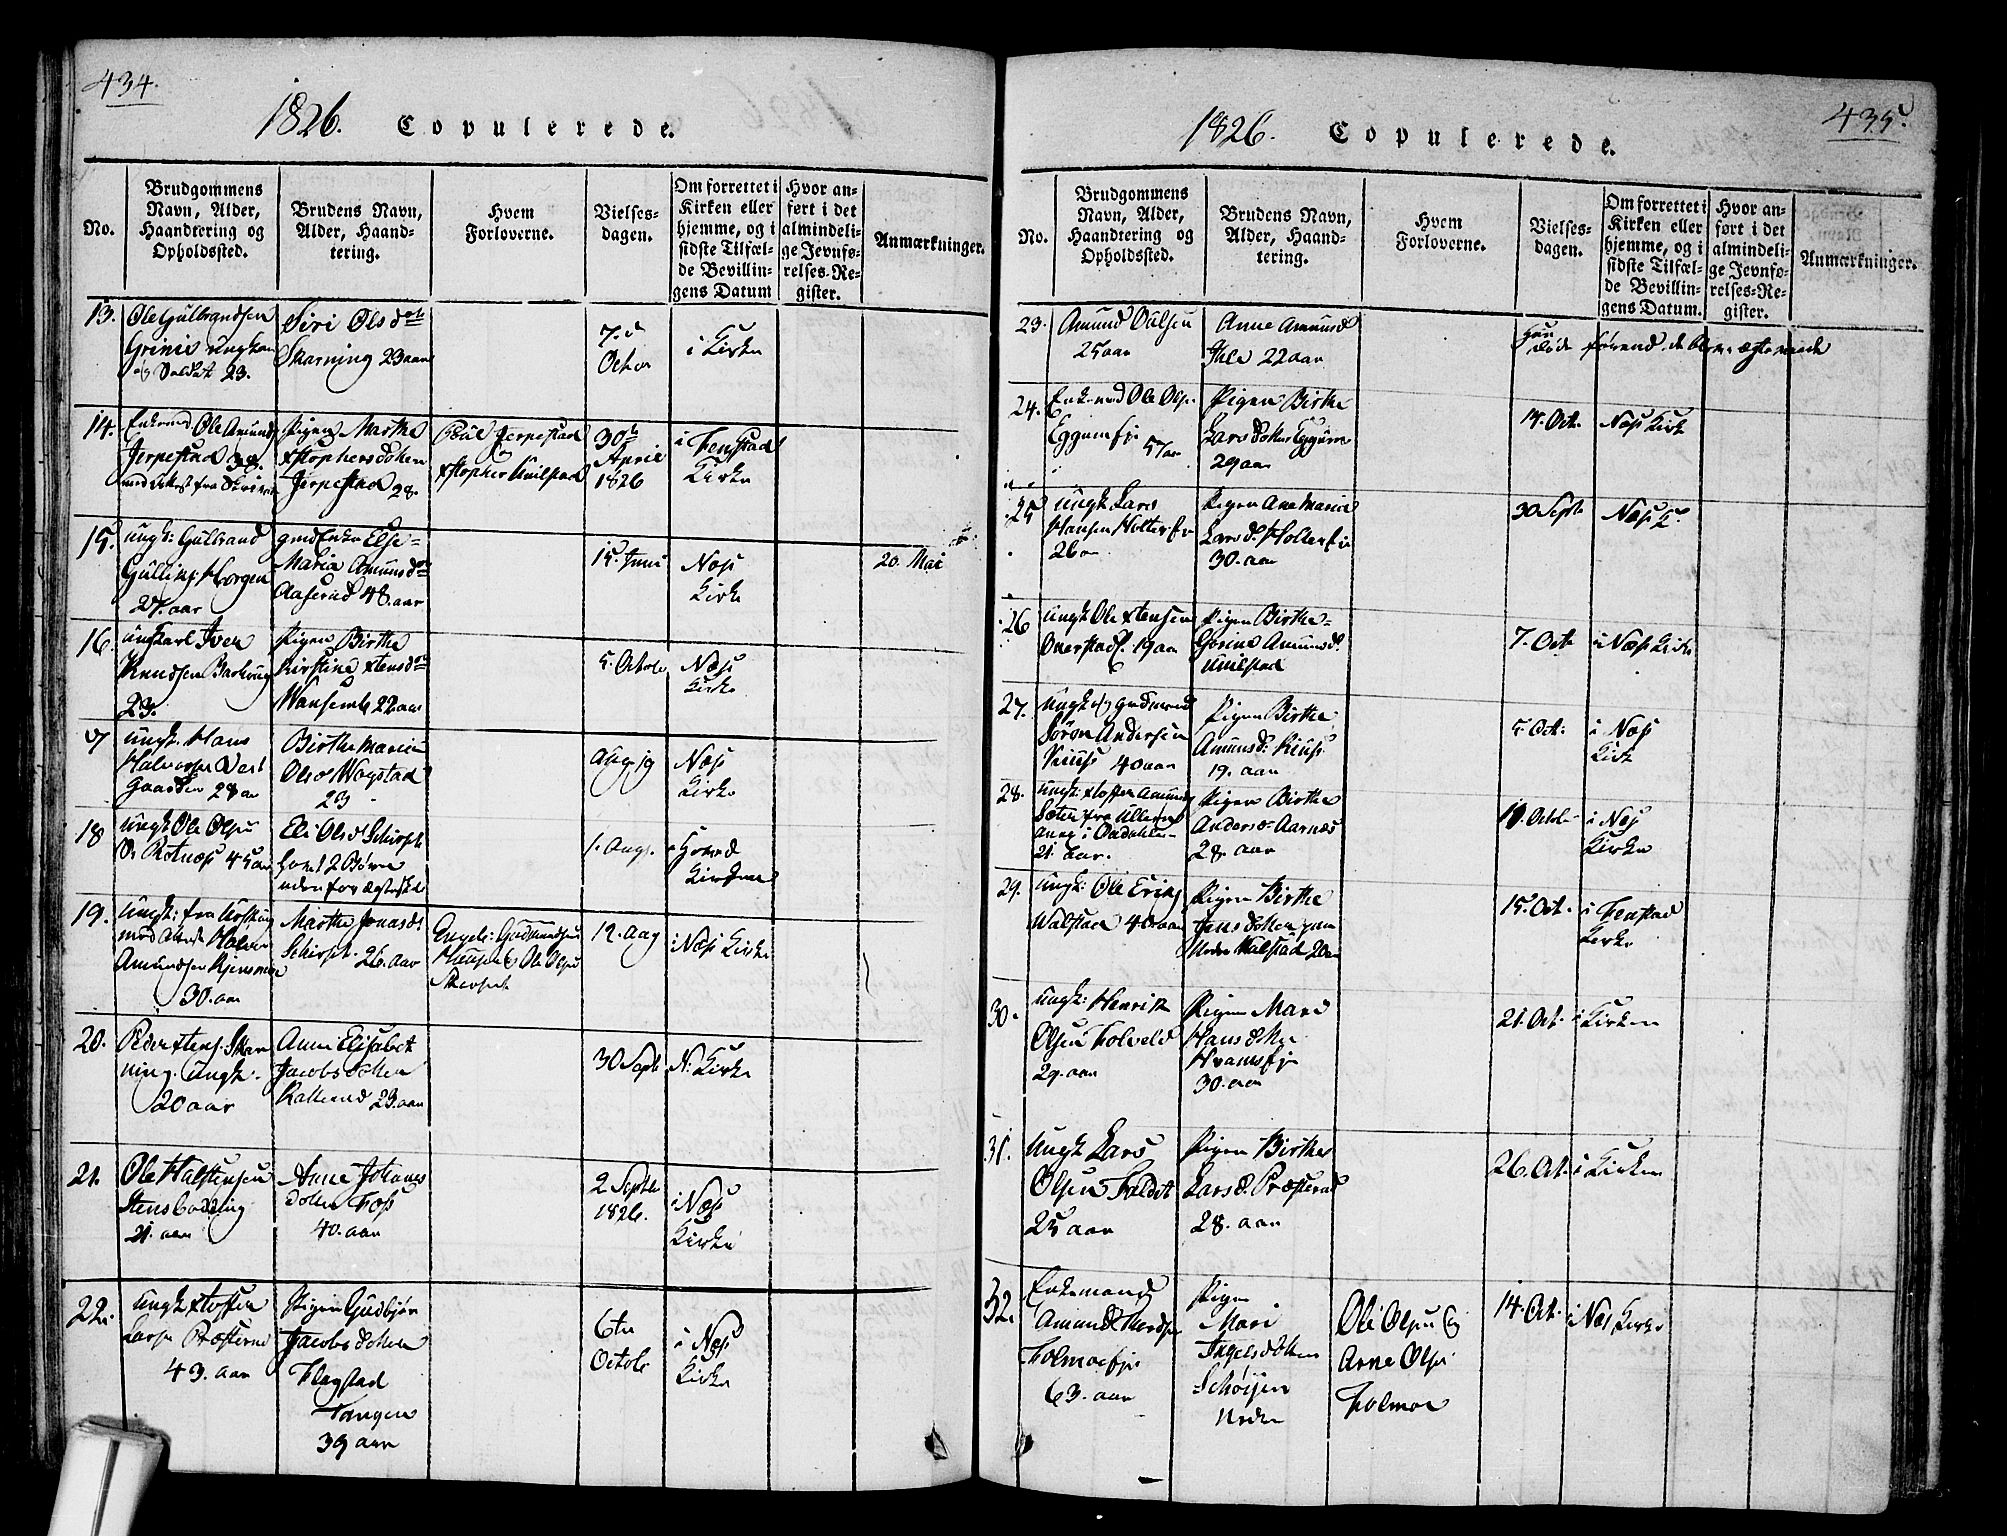 434.
1826. Copulerede.
No.
Brudgommens
Navn, Alder,
Haandtering og
Opholdssted.
Brudens Navn,
Alder, Haand-
tering.
Hvem
Forloverne.
Vielses-
dagen.
Om forrettet i
Kirken eller
hjemme, og i
sidste Tilfæl-
de Bevillin-
gens Datum
Hvor an-
ført i det
almindeli-
ge Jevnfø-
relses-Re-
gister.
Anmærkninger.
13. Ole Gulbrandsen
Grinie
og Soldat 23.
Siri Olsd
Skarning 23 aar
7.
Octbr
i Kirke
14. Ole Amunds
Jerpestad
med fra
Pigen Martha
Xstophersdotter
Jerpestad 28.
Poul Jerpestad
Xstopher Huilstad
30
April
1826
i Fenstad
Kirke
15. ungk: Gulbrand
Horgen
27. aar
Else
Maria Amunds
Aaserud 48. aar
15. Juni
Næs
Kirke
20. Mai
16. ungkarl Iver
Knudsen
23.
Pigen Birthe
Kirstine Xtensd
Hansemb 22 aar
5. Octobr
Næs
Kirke
ungk. Hans
Halvorsen Vest
Gaarden 28 aar
Birthe Marie
Olsd Wogstad
29
Aug
Næs
Kirke
18 ungk Ole Olsen
Rotnæs 45 aar
Eli Olsd
2 Børn
uden for Ægteskab
1. Aug.
19. ungk: fra
med Attest Halvor
Amundsen
30. aar
Marthe Jonasd
26. aar
Engelb: Gudmundsen
Ole Olsen
12. Aug
i Næs Kirke
20. Peder Xtens: Skar
ning. ungk.
20 aar
Anne Elisabet
Jacobsdotter
Kallerud 23. aar
30 Septb
N: Kirke
21. Ole Halstensen
Stensbodding
21. aar
Anne Johanes
dotter Fos
40. aar
2 Septbr
1826.
i Næs
Kirke
22. ungk Xtoffer
Larsen Præsterud
43. aar
Pigen Gudbjør
Jacobsdotter
Flagstad
Tangen
39 aar
6te
Octobr
i Næs
Kirke
435.
1826. Copulerede.
No.
Brudgommens
Navn, Alder,
Haandtering og
Opholdssted.
Brudens Navn,
Alder, Haand-
tering.
Hvem
Forloverne.
Vielses-
dagen.
Om forrettet i
Kirken eller
hjemme, og i
sidste Tilfæl-
de Bevillin-
gens Datum.
Hvor an-
ført i det
almindeli-
ge Jevnfø-
relses-Re-
gister.
Anmærkninger.
23. Amund
25 aar
Anne Amunsd
Ihle 22 aar
Hun
døde førend de bleve ægteviede
24. Enkemand Ole Olsen
Eggum
57 aar
Pigen Birthe
Larsdotter Eggum
29 aar
14. Oct.
Næs Kirk
25 ungk Lars
Hansen Holter
26 aar
Pigen Ane Marie
Larsd. Holter
30. aar
30 Septb
Næs K
26 ungk Ole Xtensen
Overstad 19 aar
Pigen Birthe
Gorine Amunsd.
Huilstad
7. Oct
i Næs Kirke
27. ungk og
Søren Andersen
40 aar
Pigen Birthe
Amunsd:
19. aar
5. Oct:
i Næs
Kirk
28. ungk: Xtoffer Amunds
fra Ullens
21. aar.
Pigen Birthe
Andersd Aarnæs
28. aar
Octb
i Næs
Kirke
29. ungk: Ole Eriks
Walstad 40 aar
Pigen Birthe
Jensdotter
Walstad 20 aar
15. Oct.
i Fenstad
Kirke
30. ungk: Henrik
Olsen
29. aar
Pigen Mare
Hansdotter
30. aar
21. Oct.
i Kirken
31. ungk Lars
Olsen Faldet
25 aar
Pigen Birthe
Larsd. Præsterud
28. aar
26. Oct.
i Kirken
32. Enkemand
Amund
Folmoe
63. aar
Pigen
Mari
Ingelsdotter
Schøyen
Ole Olsen og
Arne Olsen
Folmoe
14. Oct.
i Næs Kirke